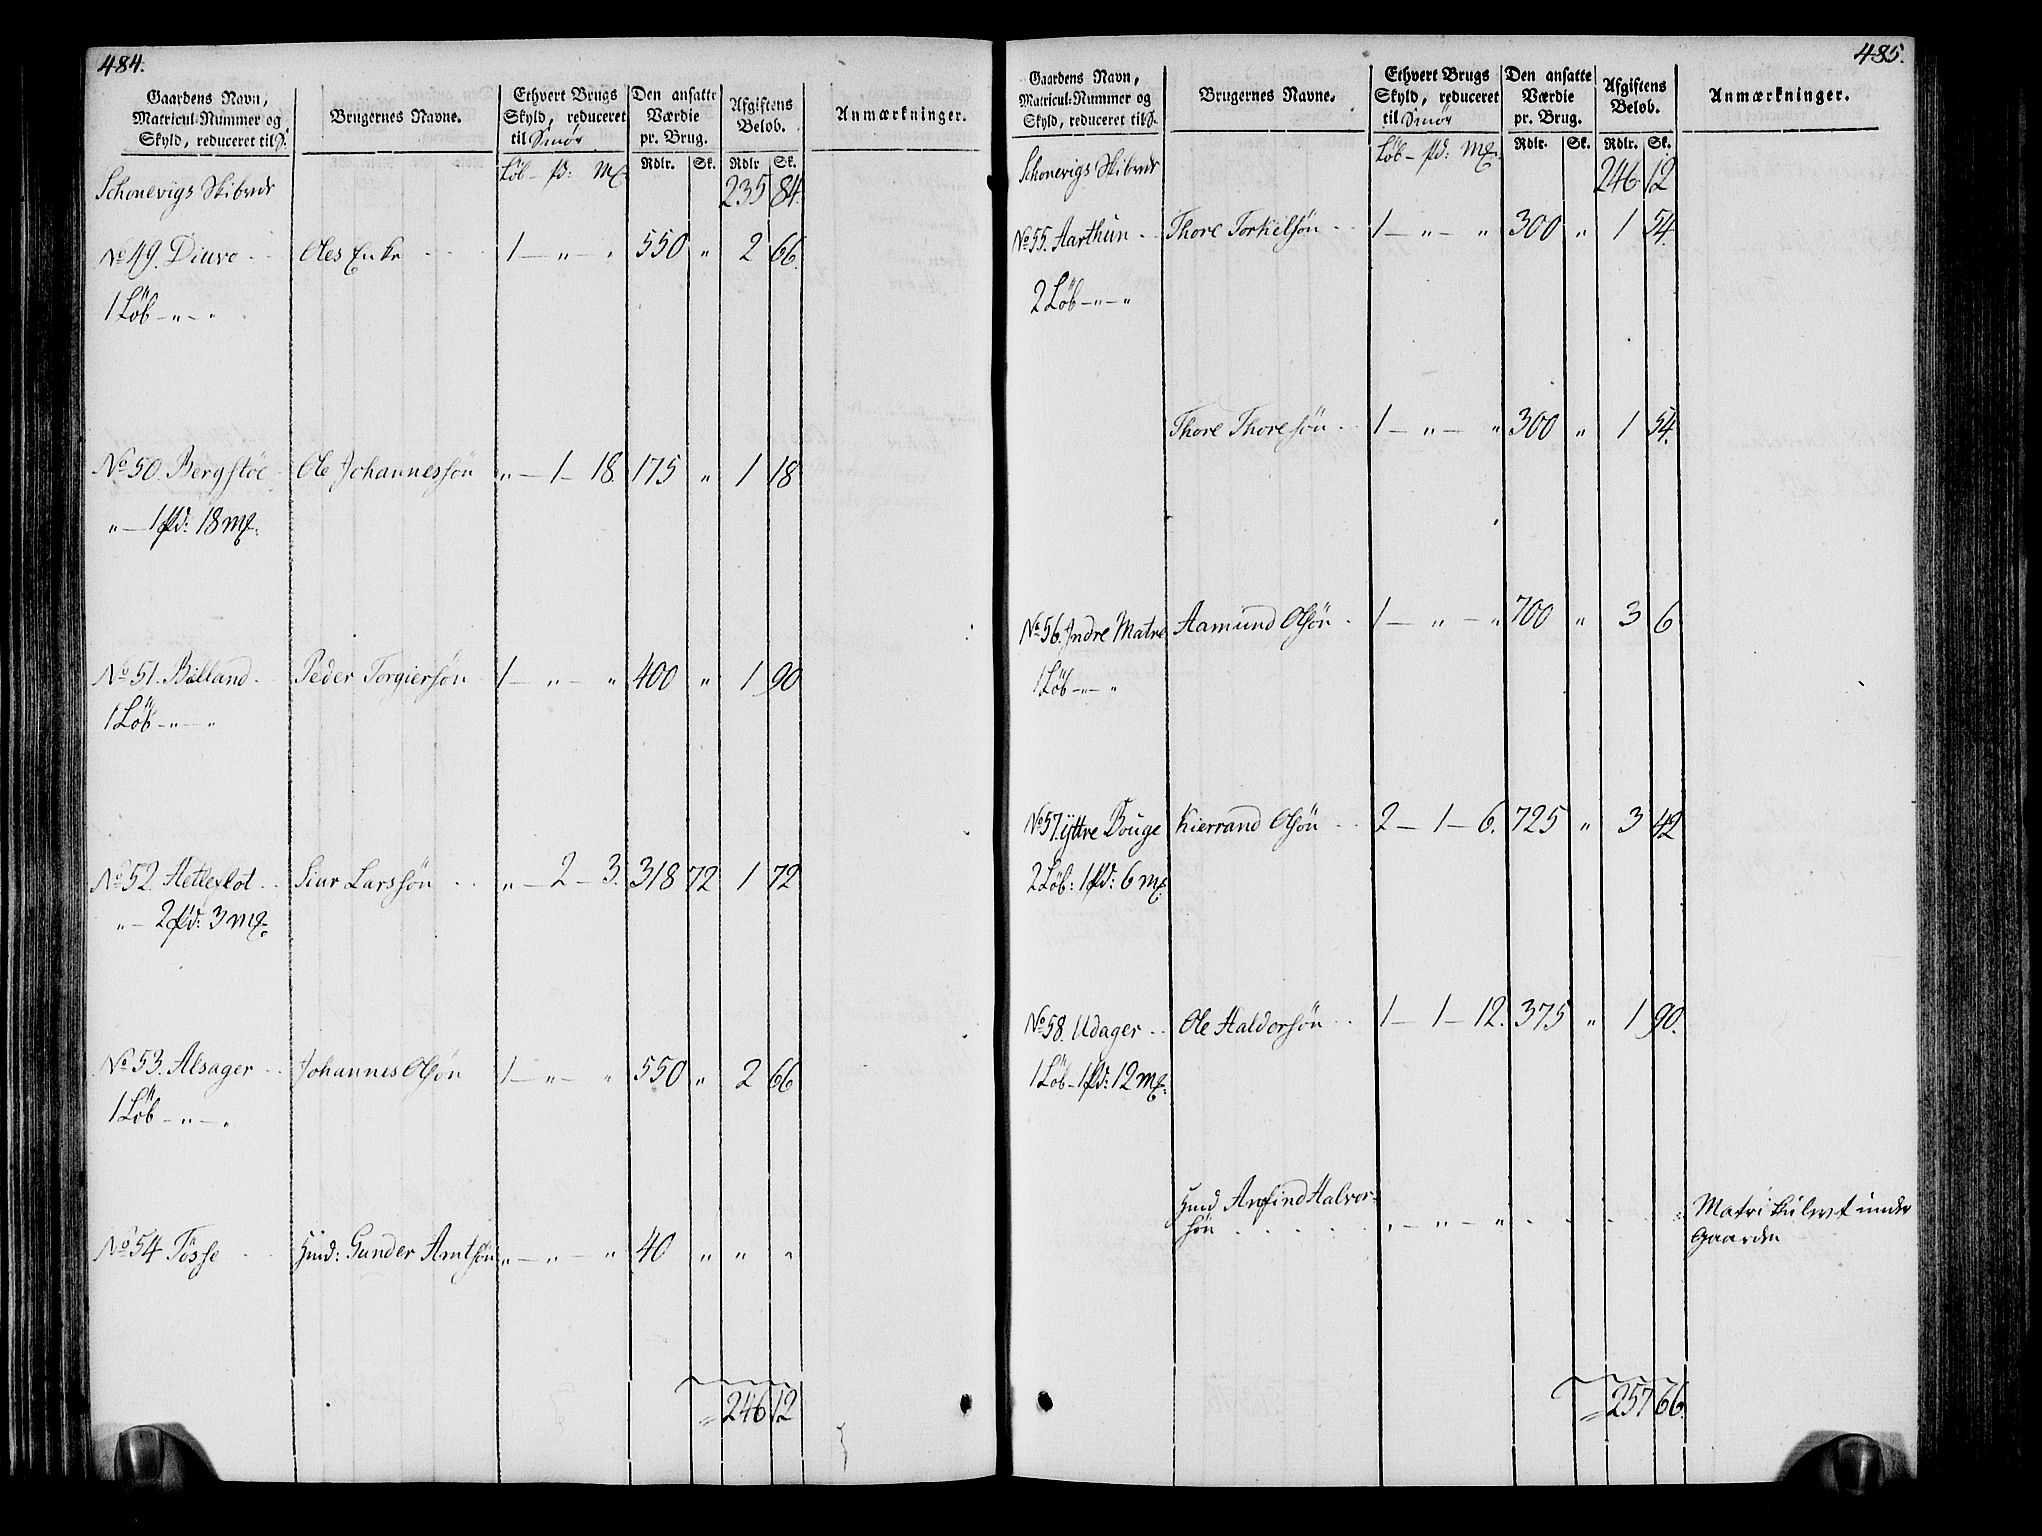 484.
Gaardens Navn, Matricul-Nummer og Skyld, reduceret til
Brugernes Navne.
Ethvert Brugs Skyld, reduceret til Smör
Den ansatte Værdie pr. Brug.
Afgiftens Belob.
Anmærkninger.
Löb - Rdlr. Sk. Rdlr Sk.
Schonevigs Skibrede 235 84.
No 49. Diuve Oles Enke 1 — „ — „ 550 „ 2 66.
1 Löb — „ — „
No 50. Bergstöe Ole Johannessön „ — 1 — 18. 175 „ 1 18
„ — 1 pd: 18 mk.
No 51. Bielland Peder Torgiersön 1 — „ — „ 400 „ 1 90
1 Löb — „ — „
No 52. Hetleflot Siur Larssön „ — 2 — 3. 318 72 1 72
„ — 2 pd: 3 mk.
No 53. Alsager Johannes Olsön 1 — „ — „ 550 „ 2 66
1 Löb — „ — „
No 54 Tösse Hmd: Gunder Amtsön „ — „ — „ 40 „ „ „
246 12
485.
Gaardens Navn, Matricul-Nummer og Skyld, reduceret til
Brugernes Navne.
Ethvert Brugs Skyld, reduceret til Smör
Den ansatte Værdie pr. Brug.
Afgiftens Belob.
Anmærkninger.
Löb — pd: mk. Rdlr. Sk. Rdlr. Sk.
Schonevigs Skibrede 246 12
No 55. Aarthun Thore Torkelsön 1 — „ — „ 300 „ 1 54.
2 Löb — „ — „
Thore Thoresön 1 — „ — „ 300 „ 1 54.
No 56. Indre Matre Aamund Olsön 1 — „ — „ 700 „ 3 6
1 Löb — „ — „
No 57. Yttre Bouge Kierrand Olsön 2 — 1 — 6. 725 „ 3 42
2 Löb: 1 pd: 6 mk.
No 58. Udager Ole Haldorsön 1 — 1 — 12. 375 „ 1 90.
1 Löb — 1 pd: 12 mk.
Hmd Arnfind Halvor-
sön „ — „ — „ Matrikulert under
Gaarden
257 66.